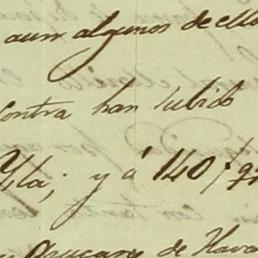 aun algunos de ello
contra han subido
Isla; y á 140
Azucar de Hava